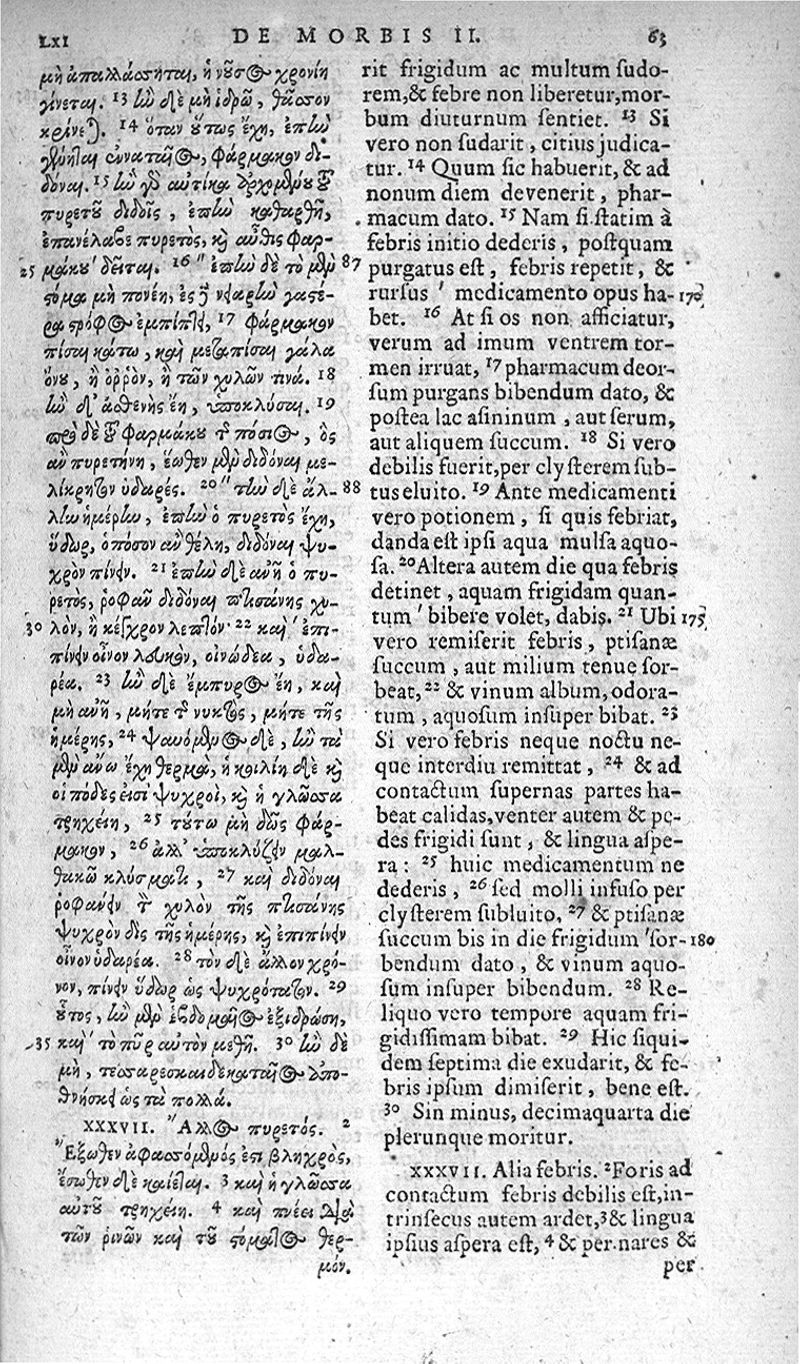 LXI
DE MORBIS II.
63
μὴ ἀπαλλάσσηται, ἡ νοῦσος χρονίη
γίνεται. 13 ἢν δὲ μὴ ἱδρῶ, θᾶσσον
κρίνεται. 14 ὅταν οὕτως ἔχῃ, ἐπὴν
γένηται ἐνναταῖος, φάρμακον δι-
δόναι. 15 ἢν γὰρ αὐτίκα ἀρχομένου τοῦ
πυρετοῦ διδοῖς, ἐπὴν καθαρθῇ,
ἐπανέλαβε πυρετὸς, καὶ αὖθις φαρ-
25 μάκου ̓ δεῖται. 16 " ἐπὴν δὲ τὸ μὲν 87
στόμα μὴ πονέῃ, ἐς δὲ νείαρὴν γαστέ-
ρα στρόφος ἐμπίπτῃ, 17 φάρμακον
πῖσαι κάτω, καὶ μεταπῖσαι γάλα
ὄνου, ἢ ὀρρὸν, ἢ τῶν χυλῶν τινά. 18
ἢν δ' ἀσθενὴς ἔῃ, ὑποκλύσαι. 19
πρὸ δὲ τοῦ φαρμάκου τῆς πόσιος, ὃς
ἂν πυρεταίνῃ, ἕωθεν μὲν διδόναι με-
λίκρητον ὑδαρές. 20 " τὴν δὲ ἄλ- 88
λην ἡμέρην, ἐπὴν ὁ πυρετὸς ἔχῃ,
ὕδωρ, ὁπόσον ἂν θέλῃ, διδόναι ψυ-
χρὸν πίνειν. 21 ἐπὴν δὲ ἀνῇ ὁ πυ-
ρετὸς, ῥοφᾶν διδόναι πτισάνης χυ-
30 λὸν, ἢ κέγχρον λεπτόν· 22 καὶ ' ἐπι-
πίνειν οἶνον λευκὸν, οἰνώδεα, ὑδα-
ρέα. 23 ἢν δὲ ἔμπυρος ἔῃ, καὶ
μὴ ἀνῇ, μήτε τῆς νυκτὸς, μήτε τῆς
ἡμέρης, 24 ψαυόμενος δὲ, ἢν τὰ
μὲν ἄνω ἔχῃ θερμὰ, ἡ κοιλίη δὲ καὶ
οἱ πόδες εἰσὶ ψυχροὶ, καὶ ἡ γλῶσσα
τρηχείη, 25 τούτῳ μὴ δῷς φάρ-
μακον, 26 ἀλλ' ὑποκλύζειν μαλ-
θακῷ κλύσματι, 27 καὶ διδόναι
ῥοφάνειν τὸν χυλὸν τῆς πτισάνης
ψυχρὸν δὶς τῆς ἡμέρης, καὶ ἐπιπίνειν
οἶνον ὑδαρέα. 28 τὸν δὲ ἄλλον χρό-
νον, πίνειν ὕδωρ ὡς ψυχρότατον. 29
οὗτος, ἢν μὲν ἑβδομαῖος ἐξιδρώσῃ,
35 καὶ ' τὸ πῦρ αὐτὸν μεθῇ. 30 ἢν δὲ
μὴ, τεσσαρεσκαιδεκαταῖος ἀπο-
θνήσκει ὡς τὰ πολλά.
XXXVII. "Ἄλλος πυρετός. 2
Ἔξωθεν ἀφασσόμενός ἐστι βληχρὸς,
ἔσωθεν δὲ καίεται. 3 καὶ ἡ γλῶσσα
αὐτοῦ τρηχείη. 4 καὶ πνέει διὰ
τῶν ῥινῶν καὶ τοῦ στόματος θερ-
μόν.
rit frigidum ac multum sudo-
rem, & febre non liberetur, mor-
bum diuturnum sentiet. 13 Si
vero non sudarit, citius judica-
tur. 14 Quum sic habuerit, & ad
nonum diem devenerit, phar-
macum dato. 15 Nam si statim à
febris initio dederis, postquam
purgatus est, febris repetit, &
rursus ' medicamento opus ha- 170
bet. 16 At si os non afficiatur,
verum ad imum ventrem tor-
men irruat, 17 pharmacum deor-
sum purgans bibendum dato, &
postea lac asininum, aut serum,
aut aliquem succum. 18 Si vero
debilis fuerit, per clysterem sub-
tus eluito. 19 Ante medicamenti
vero potionem, si quis febriat,
danda est ipsi aqua mulsa aquo-
sa. 20 Altera autem die qua febris
detinet, aquam frigidam quan-
tum ' bibere volet, dabis. 21 Ubi 175
vero remiserit febris, ptisanæ
succum, aut milium tenue sor-
beat, 22 & vinum album, odora-
tum, aquosum insuper bibat. 23
Si vero febris neque noctu ne-
que interdiu remittat, 24 & ad
contactum supernas partes ha-
beat calidas, venter autem & pe-
des frigidi sunt, & lingua aspe-
ra: 25 huic medicamentum ne
dederis, 26 sed molli infuso per
clysterem subluito, 27 & ptisanæ
succum bis in die frigidum ' sor- 180
bendum dato, & vinum aquo-
sum insuper bibendum. 28 Re-
liquo vero tempore aquam fri-
gidissimam bibat. 29 Hic siqui-
dem septima die exudarit, & fe-
bris ipsum dimiserit, bene est.
30 Sin minus, decimaquarta die
plerunque moritur.
XXXVII. Alia febris. 2 Foris ad
contactum febris debilis est, in-
trinsecus autem ardet, 3 & lingua
ipsius aspera est, 4 & per nares &
per